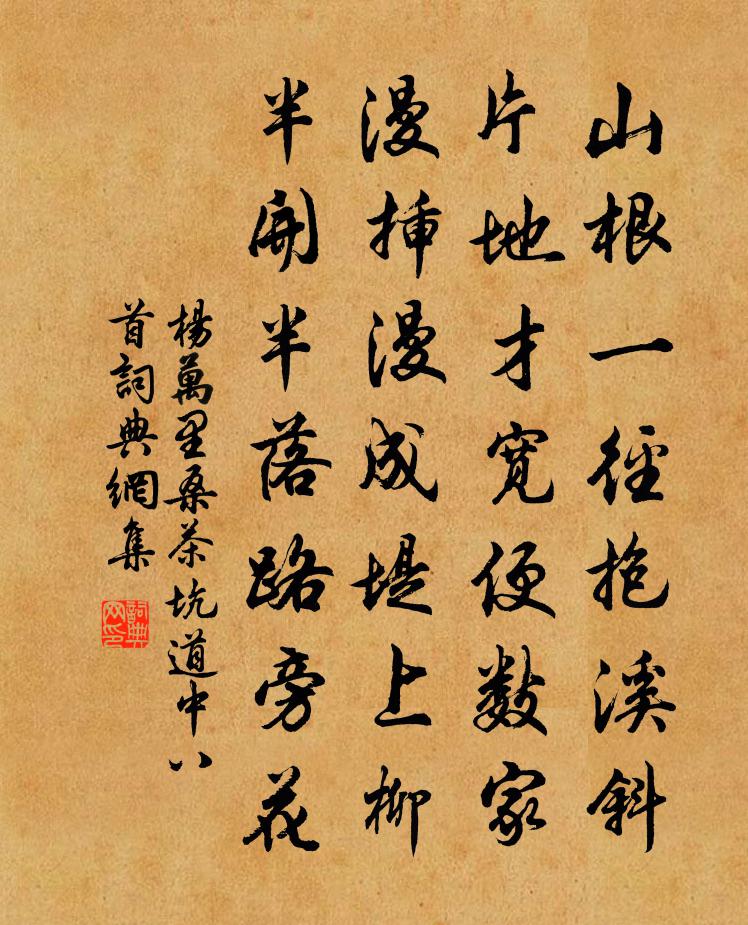 山根一徑抱溪斜
片地才寬便數家
漫揷漫成堤上柳
半開半落路旁花
楊萬里桑茶坑道中八
首詞典網集
詞典网印